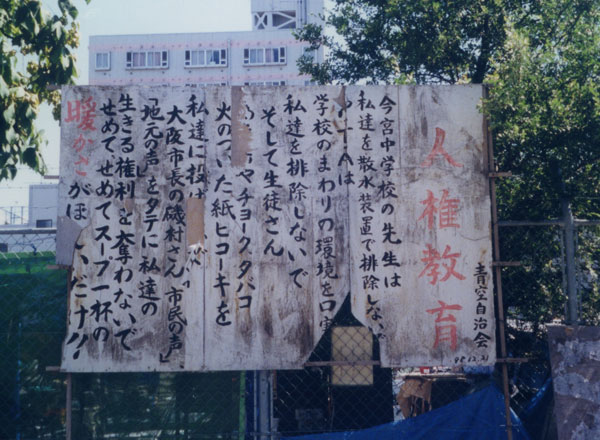 人権教育
青空自治会
今宮中学校の先生は
私達を散水装置で排除しない
Aは
学校のまわりの環境を口実
私達を排除しないで
そして生徒さん
やチョークタバコ
火のついた紙ヒコーキを
私達に投げ
大阪市長の磯村さん「市民の声」
「地元の声」をタテに私達の
生きる権利を奪わないで
せめてせめてスープ一杯の
暖かさがほしいだけ!!